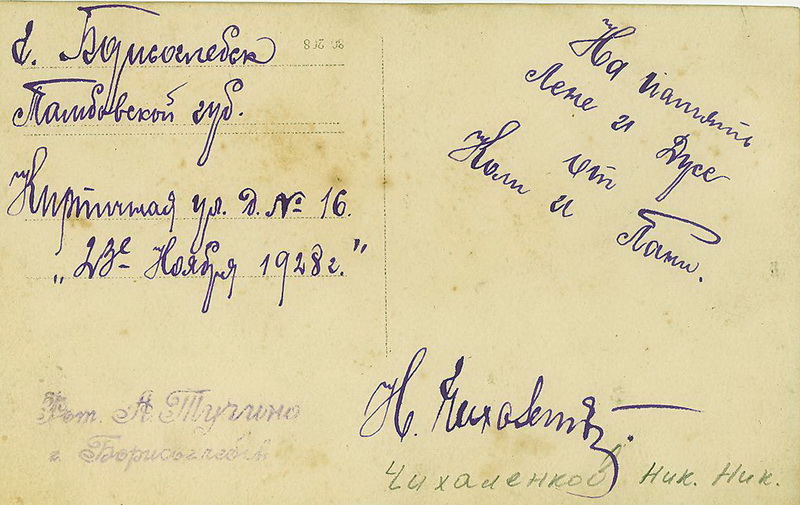 г. Борисоглебск
Тамбовской губ.
Кирпичная ул. д. № 16.
„23е Ноября 1928 г.”
На память
Лене и Дусе
от
Коли и Пани.
Фот. А. Туччино
г. Борисоглебск
Н.
Чихаленко Ник. Ник.